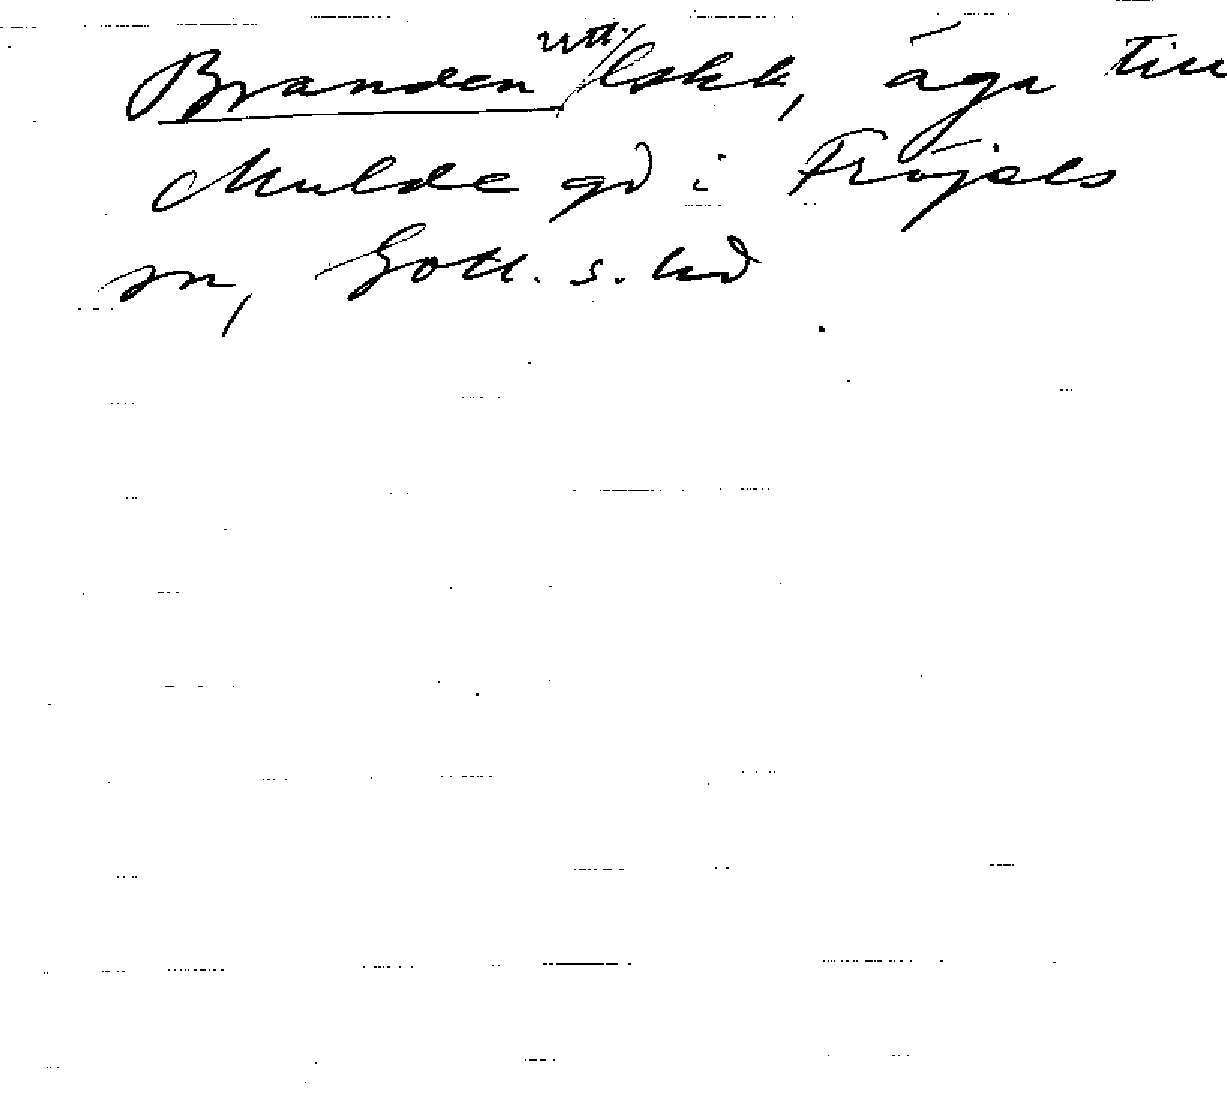 Branden utt./lokk, äga till
Mulde gd i Fröjels
sn, Gotl. s. hd